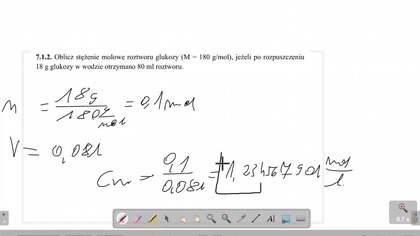 7.1.2. Oblicz stężenie molowe roztworu glukozy (M = 180 g/mol), jeżeli po rozpuszczeniu
18 g glukozy w wodzie otrzymano 80 ml roztworu.
n = 18g / 180 g/mol = 0,1 mol
V = 0,08 l
Cm = 0,1 / 0,08 l = 1,234567901 mol / l
AI